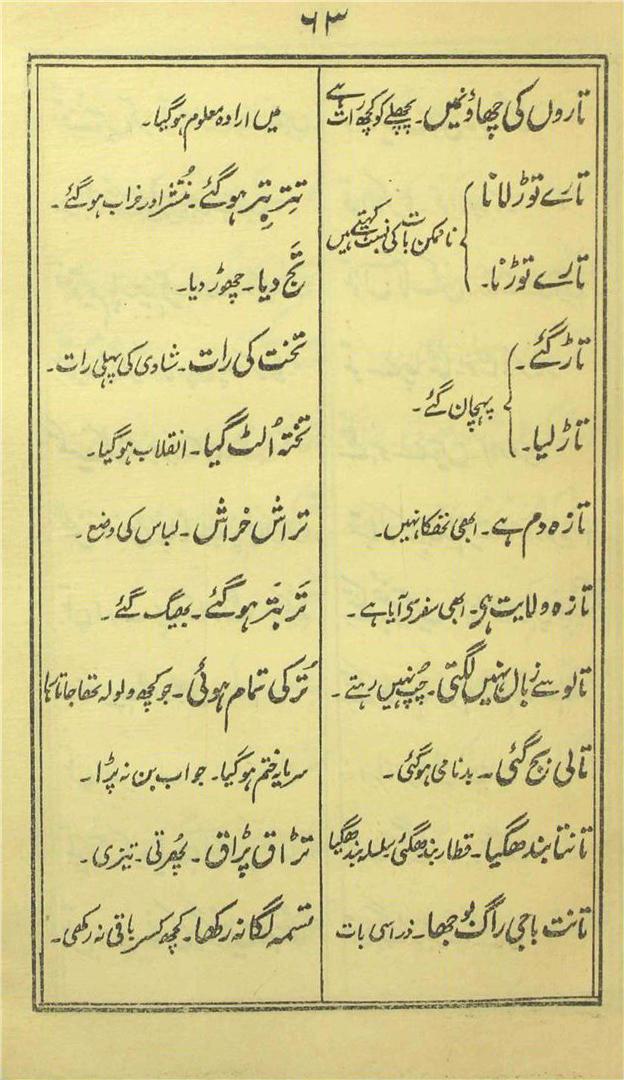 ۶۳
تاروں کی چھاؤنمیں۔ پچھلے کو کچھ رات ہے
تارے توڑ لانا
تارے توڑنا۔
ناممکن بات کی نسبت کہتے ہیں
تاڑ گئے۔
تاڑ لیا۔
پہچان گئے۔
تازہ دم ہے۔ ابھی تھکا نہیں۔
تازہ ولایت ہی۔ ابھی سفر سے آیا ہے۔
تالو سے زبان نہیں لگتی۔ چپ نہیں رہتے۔
تالی بج گئی۔ بدنامی ہو گئی۔
تانتا بندھ گیا۔ قطار بندھ گئی سلسلہ بندھ گیا
تانت باجی راگ بوجھا۔ ذرا سی بات
میں ارادہ معلوم ہو گیا۔
تِتر بِتر ہو گئے۔ مُنتشر اور خراب ہو گئے۔
تَج دیا۔ چھوڑ دیا۔
تخت کی رات۔ شادی کی پہلی رات۔
تختہ اُلٹ گیا۔ انقلاب ہو گیا۔
تراش خراش۔ لباس کی وضع۔
تَر بَتر ہو گئے۔ بھیگ گئے۔
تُرکی تمام ہوئی۔ جو کچھ ولولہ تھا جاتا رہا
سرمایہ ختم ہو گیا۔ جواب بن نہ پڑا۔
تڑاق پڑاق۔ پھُرتی۔ تیزی۔
تسمہ لگا نہ رکھا۔ کچھ کسر باقی نہ رکھی۔